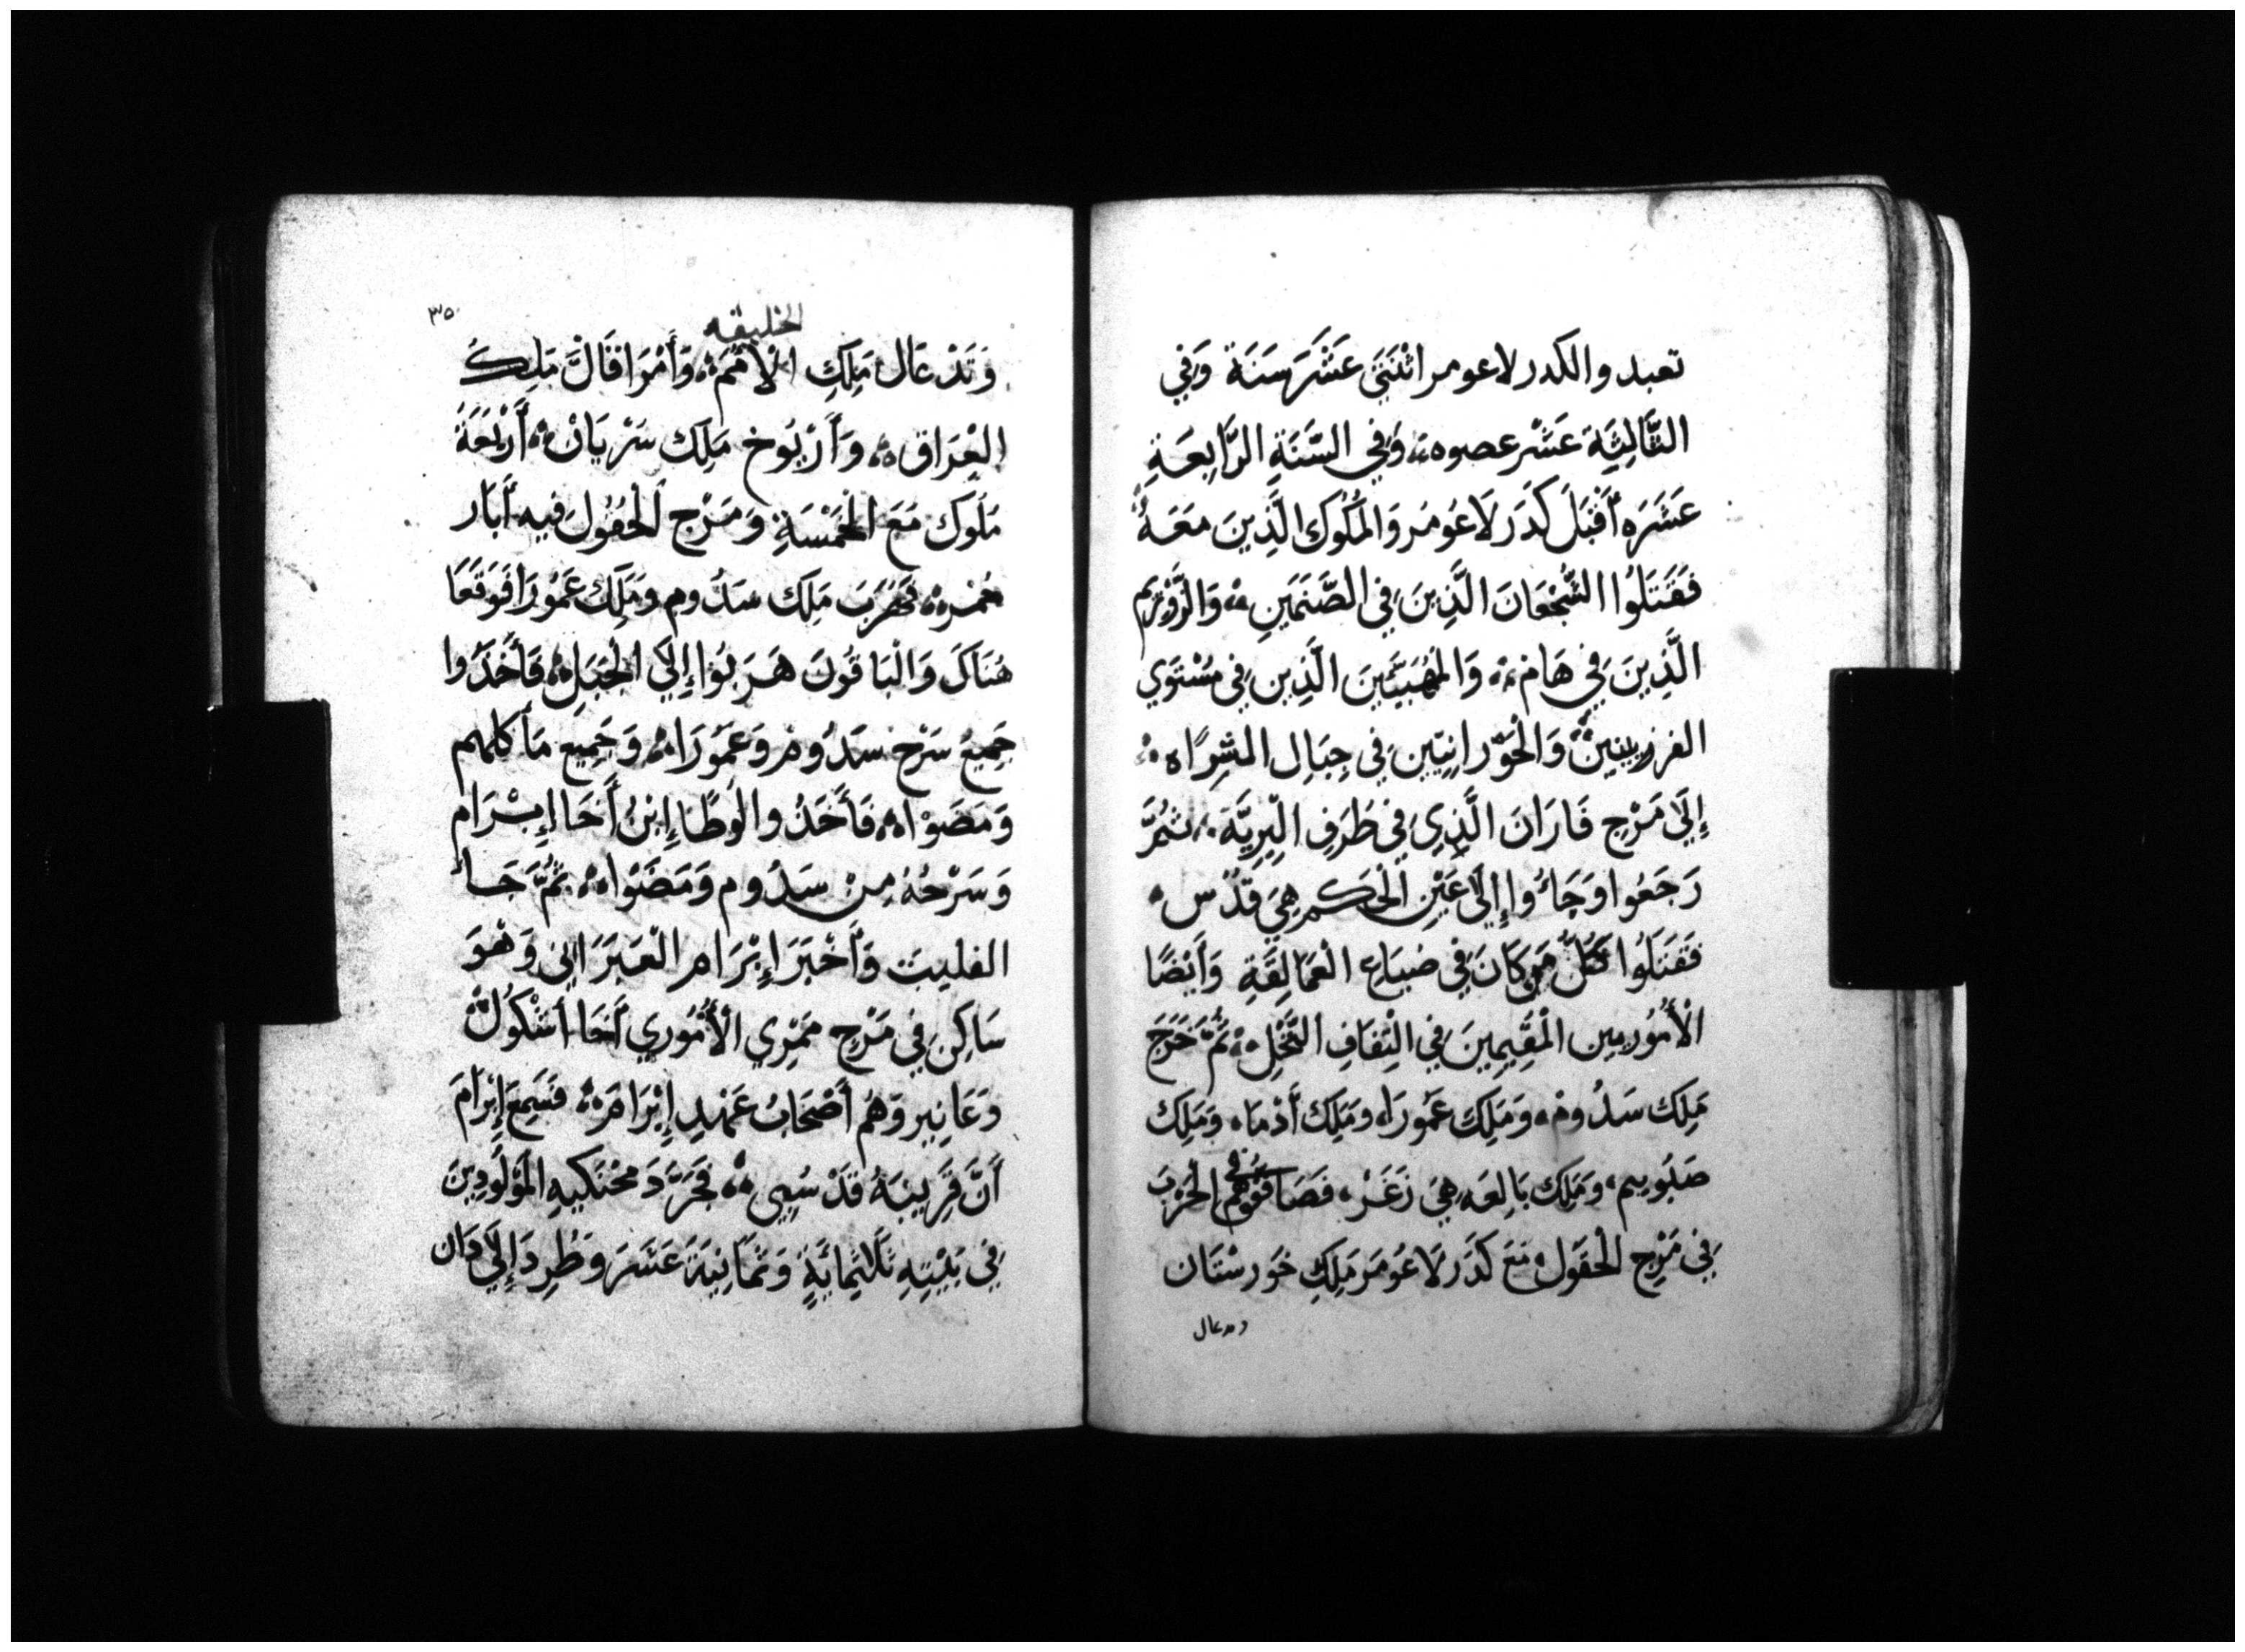 تعبد والكدر لاعومر اثْنَتَي عَشْرَ سَنَةَ وَفِي
الثَّالِثِيَةَ عَشْر عصوه وَفِي السَّنَةِ الرَّابِعَةِ
عَشَرَه أَقْبَلَ كَدَر لَاعُومَر وَالمُلُوك الَّذِينَ مَعَهُ
فَقَتَلُوا الشُّجْعَانَ الَّذِينَ فِي الصَّنَمَينِ وَالزَّوْزِيم
الَّذِينَ فِي هَام وَالمُهَيَبِّينَ الَّذِين فِي مُسْتَوَي
القريتين وَالْحَوّرانِيّين فِي جِبَالِ الشراه
إِلَى مَرْجِ فَارَانَ الَّذِي فِي طَرَفِ الْبِرِيَّة ثُمَّ
رَجَعُوا وَجَاءُوا إِلَى عَيْنِ الْحَكم هِيَ قَدَس
فَقَتَلُوا كُلُّ مَن كَانَ فِي ضياع الْعَمَالِقَةِ وَأَيْضًا
الْأَمُورِيين الْمُقِيمِينَ فِي الْتِفَافِ النَّخْلِ ثُمَّ خَرَجَ
مَلِك سَدُوم وَمَلِكَ عَمُورَاه ومَلِك أَدْمَاه وَمَلِك
صَبُوييم وَمَلِك بَالِعَه هِيَ زَغَرْ فَصَافَّوهُم الْحَرْبَ
فِي مَرْجِ الْحُقُول مَعَ كَدَر لَاعُومَر مَلِكِ خَورستَان
وتدعال
الخليقه
٣٥
وَتَدْعَال مَلِكِ الْأُمَم وَأَمْرَافَالَ مَلِك
الْعِرَاق وَأَرْيُوخ مَلِك سَرْيَان أَرْبَعَةَ
مَلُوك مَعَ الْخَمْسَةِ وَمَرْج الْحُقُول فِيه أَبَار
حُمره فَهَرَبَ مَلِك سَدُوم ومَلِك عَمُورَا فَوَقَعَا
هُنَاكَ وَالْبَاقُونَ هَرَبُوا إِلَى الْجَبَلِ فَأَخَذُوا
جَمِيعُ سَرْح سَدُوم وَعَمُورَاه وَجَمِيع مَأكلهم
وَمَضَوْاه فَأَخَذُوا لُوطًا إِبْنُ أَخَا إِبْرَام
وَسَرْحُهُ مِنْ سَدُوم وَمَضَوْاه ثُمَّ جَاءَ
الفليت وَأَخْبَرَ إِبْرَام الْعَبَرَانِي وَهْوَ
سَاكِن فِي مَرْج مَمْرِي الْأَمُورِي أَخَا أَشْكُول
وَعَانِير وَهُم أَصْحَابُ عَهْدِ إِبْرَامَ فَسَمِعَ إِبْرَامَ
أَنَّ قَرِيبَهُ قَدْ سُبِي فَجَرَّدَ مُحَنَكِيهِ المَوْلُودِينَ
فِي بَيْتِهِ ثَلَاثِمَائَةٍ وَثَمَانِيَةَ عَشَرَ وَطُرِدَ إِلَى دَان